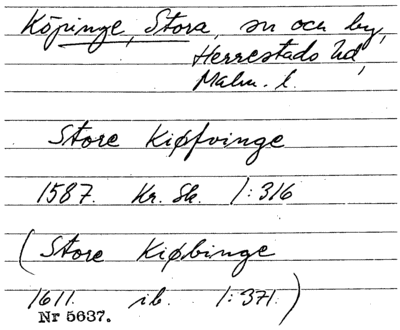 Köpinge, Stora, sn och by,
Herrestads hd,
Malm. l.
Store Kiøfvinge
1587. Kr. Sk. 1:316
(Store Kiøbinge
1611. ib. 1:371.)
Nr 5637.